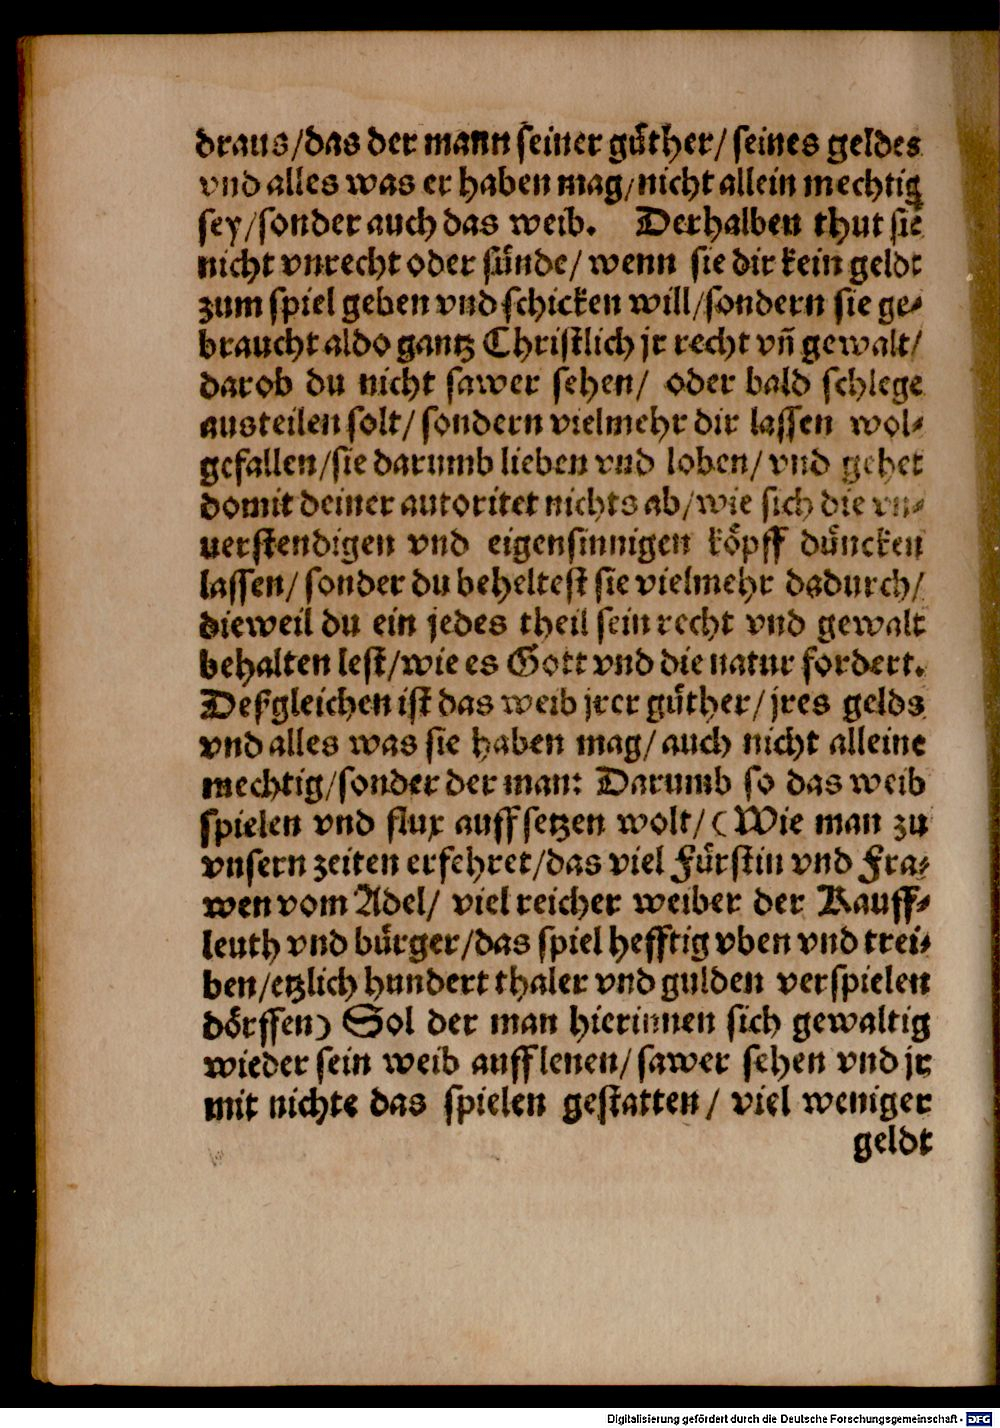 draus/das der mann seiner güther/ seines geldes
vnd alles was er haben mag/nicht allein mechtig
sey/sonder auch das weib. Derhalben thut sie
nicht vnrecht oder sünde/ wenn sie dir kein geldt
zum spiel geben vnd schicken will/sondern sie ge-
braucht aldo gantz Christlich jr recht vñ gewalt/
darob du nicht sawer sehen/ oder bald schlege
austeilen solt/ sondern vielmehr dir lassen wol-
gefallen/sie darumb lieben vnd loben/ vnd gehet
domit deiner autoritet nichts ab/wie sich die vn-
uerstendigen vnd eigensinnigen köpff düncken
lassen/ sonder du beheltest sie vielmehr dadurch/
dieweil du ein jedes theil sein recht vnd gewalt
behalten lest/wie es Gott vnd die natur fordert.
Deßgleichen ist das weib jrer güther/ jres gelds
vnd alles was sie haben mag/ auch nicht alleine
mechtig/sonder der man: Darumb so das weib
spielen vnd flux auffsetzen wolt/ (Wie man zu
vnsern zeiten erfehret/das viel Fürstin vnd Fra-
wen vom Adel/ viel reicher weiber der Kauff-
leuth vnd bürger/das spiel hefftig vben vnd trei-
ben/etzlich hundert thaler vnd gulden verspielen
dörffen) Sol der man hierinnen sich gewaltig
wieder sein weib aufflenen/ sawer sehen vnd jr
mit nichte das spielen gestatten/ viel weniger
geldt
Digitalisierung gefördert durch die Deutsche Forschungsgemeinschaft - DFG